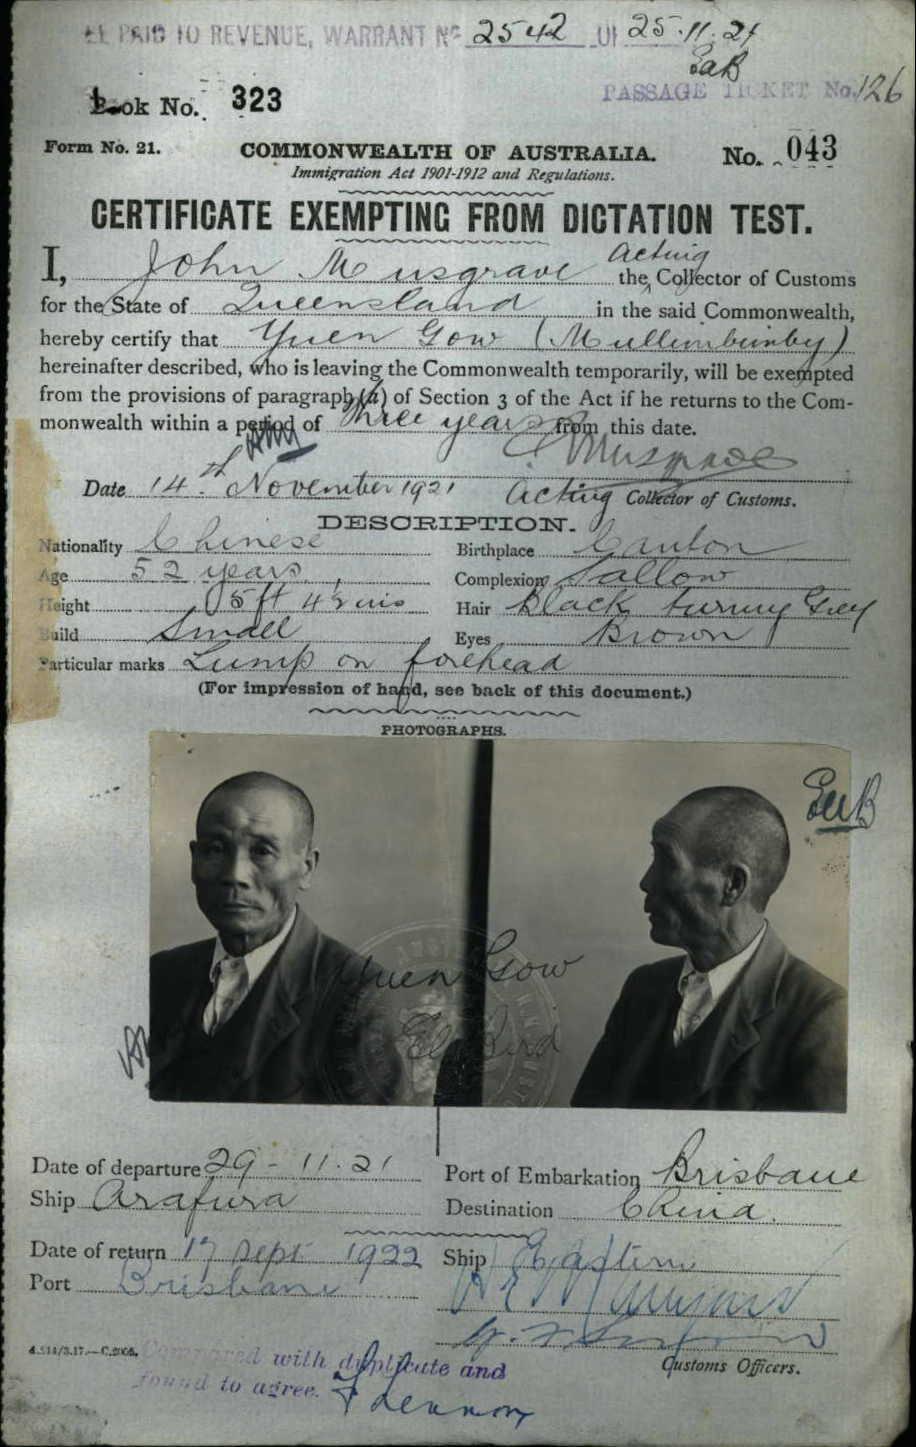 PAID TO REVENUE, WARRANT No 2542 OF 25.11.21
EaB
PASSAGE TICKET No. 126
Book No. 323
Form No. 21. COMMONWEALTH OF AUSTRALIA. No. 043
Immigration Act 1901-1912 and Regulations.
CERTIFICATE EXEMPTING FROM DICTATION TEST.
I, John Musgrave the Acting Collector of Customs
for the State of Queensland in the said Commonwealth,
hereby certify that Yuen Gow (Mullumbimby)
hereinafter described, who is leaving the Commonwealth temporarily, will be exempted
from the provisions of paragraph (a) of Section 3 of the Act if he returns to the Com-
monwealth within a period of Three years from this date.
Musgrave
Date 14th November 1921 Acting Collector of Customs.
DESCRIPTION.
Nationality Chinese Birthplace Canton
Age 52 years Complexion Sallow
Height 5ft 4½ins Hair black turning Grey
Build Small Eyes Brown
Particular marks Lump on forehead
(For impression of hand, see back of this document.)
PHOTOGRAPHS.
Yuen Gow
Date of departure 29-11.21 Port of Embarkation Brisbane
Ship Arafura Destination China.
Date of return 17 Sept 1922 Ship Eastern
Port Brisbane
Customs Officers.
Compared with duplicate and
found to agree.